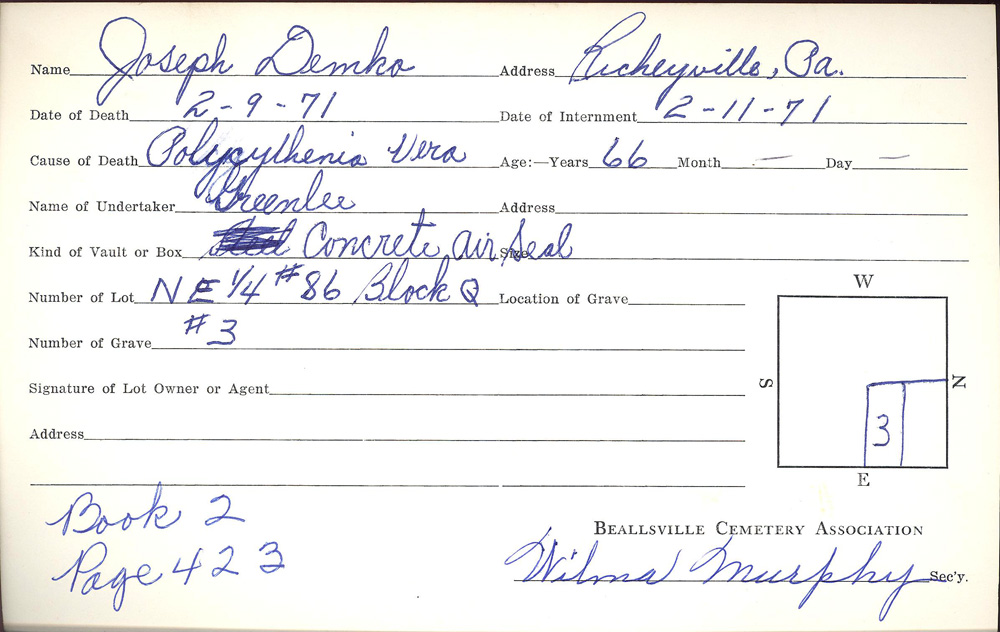 Name Joseph Demko Address Richeyville, Pa.
Date of Death 2-9-71 Date of Internment 2-11-71
Cause of Death Polycythenia Vera Age:—Years 66 Month — Day —
Name of Undertaker Greenlee Address
Kind of Vault or Box Concrete Air Seal Size
Number of Lot NE 1/4 #86 Block Q Location of Grave
Number of Grave #3
Signature of Lot Owner or Agent
Address
W
S
N
3
E
Book 2
Page 423
Beallsville Cemetery Association
Wilma Murphy Sec'y.